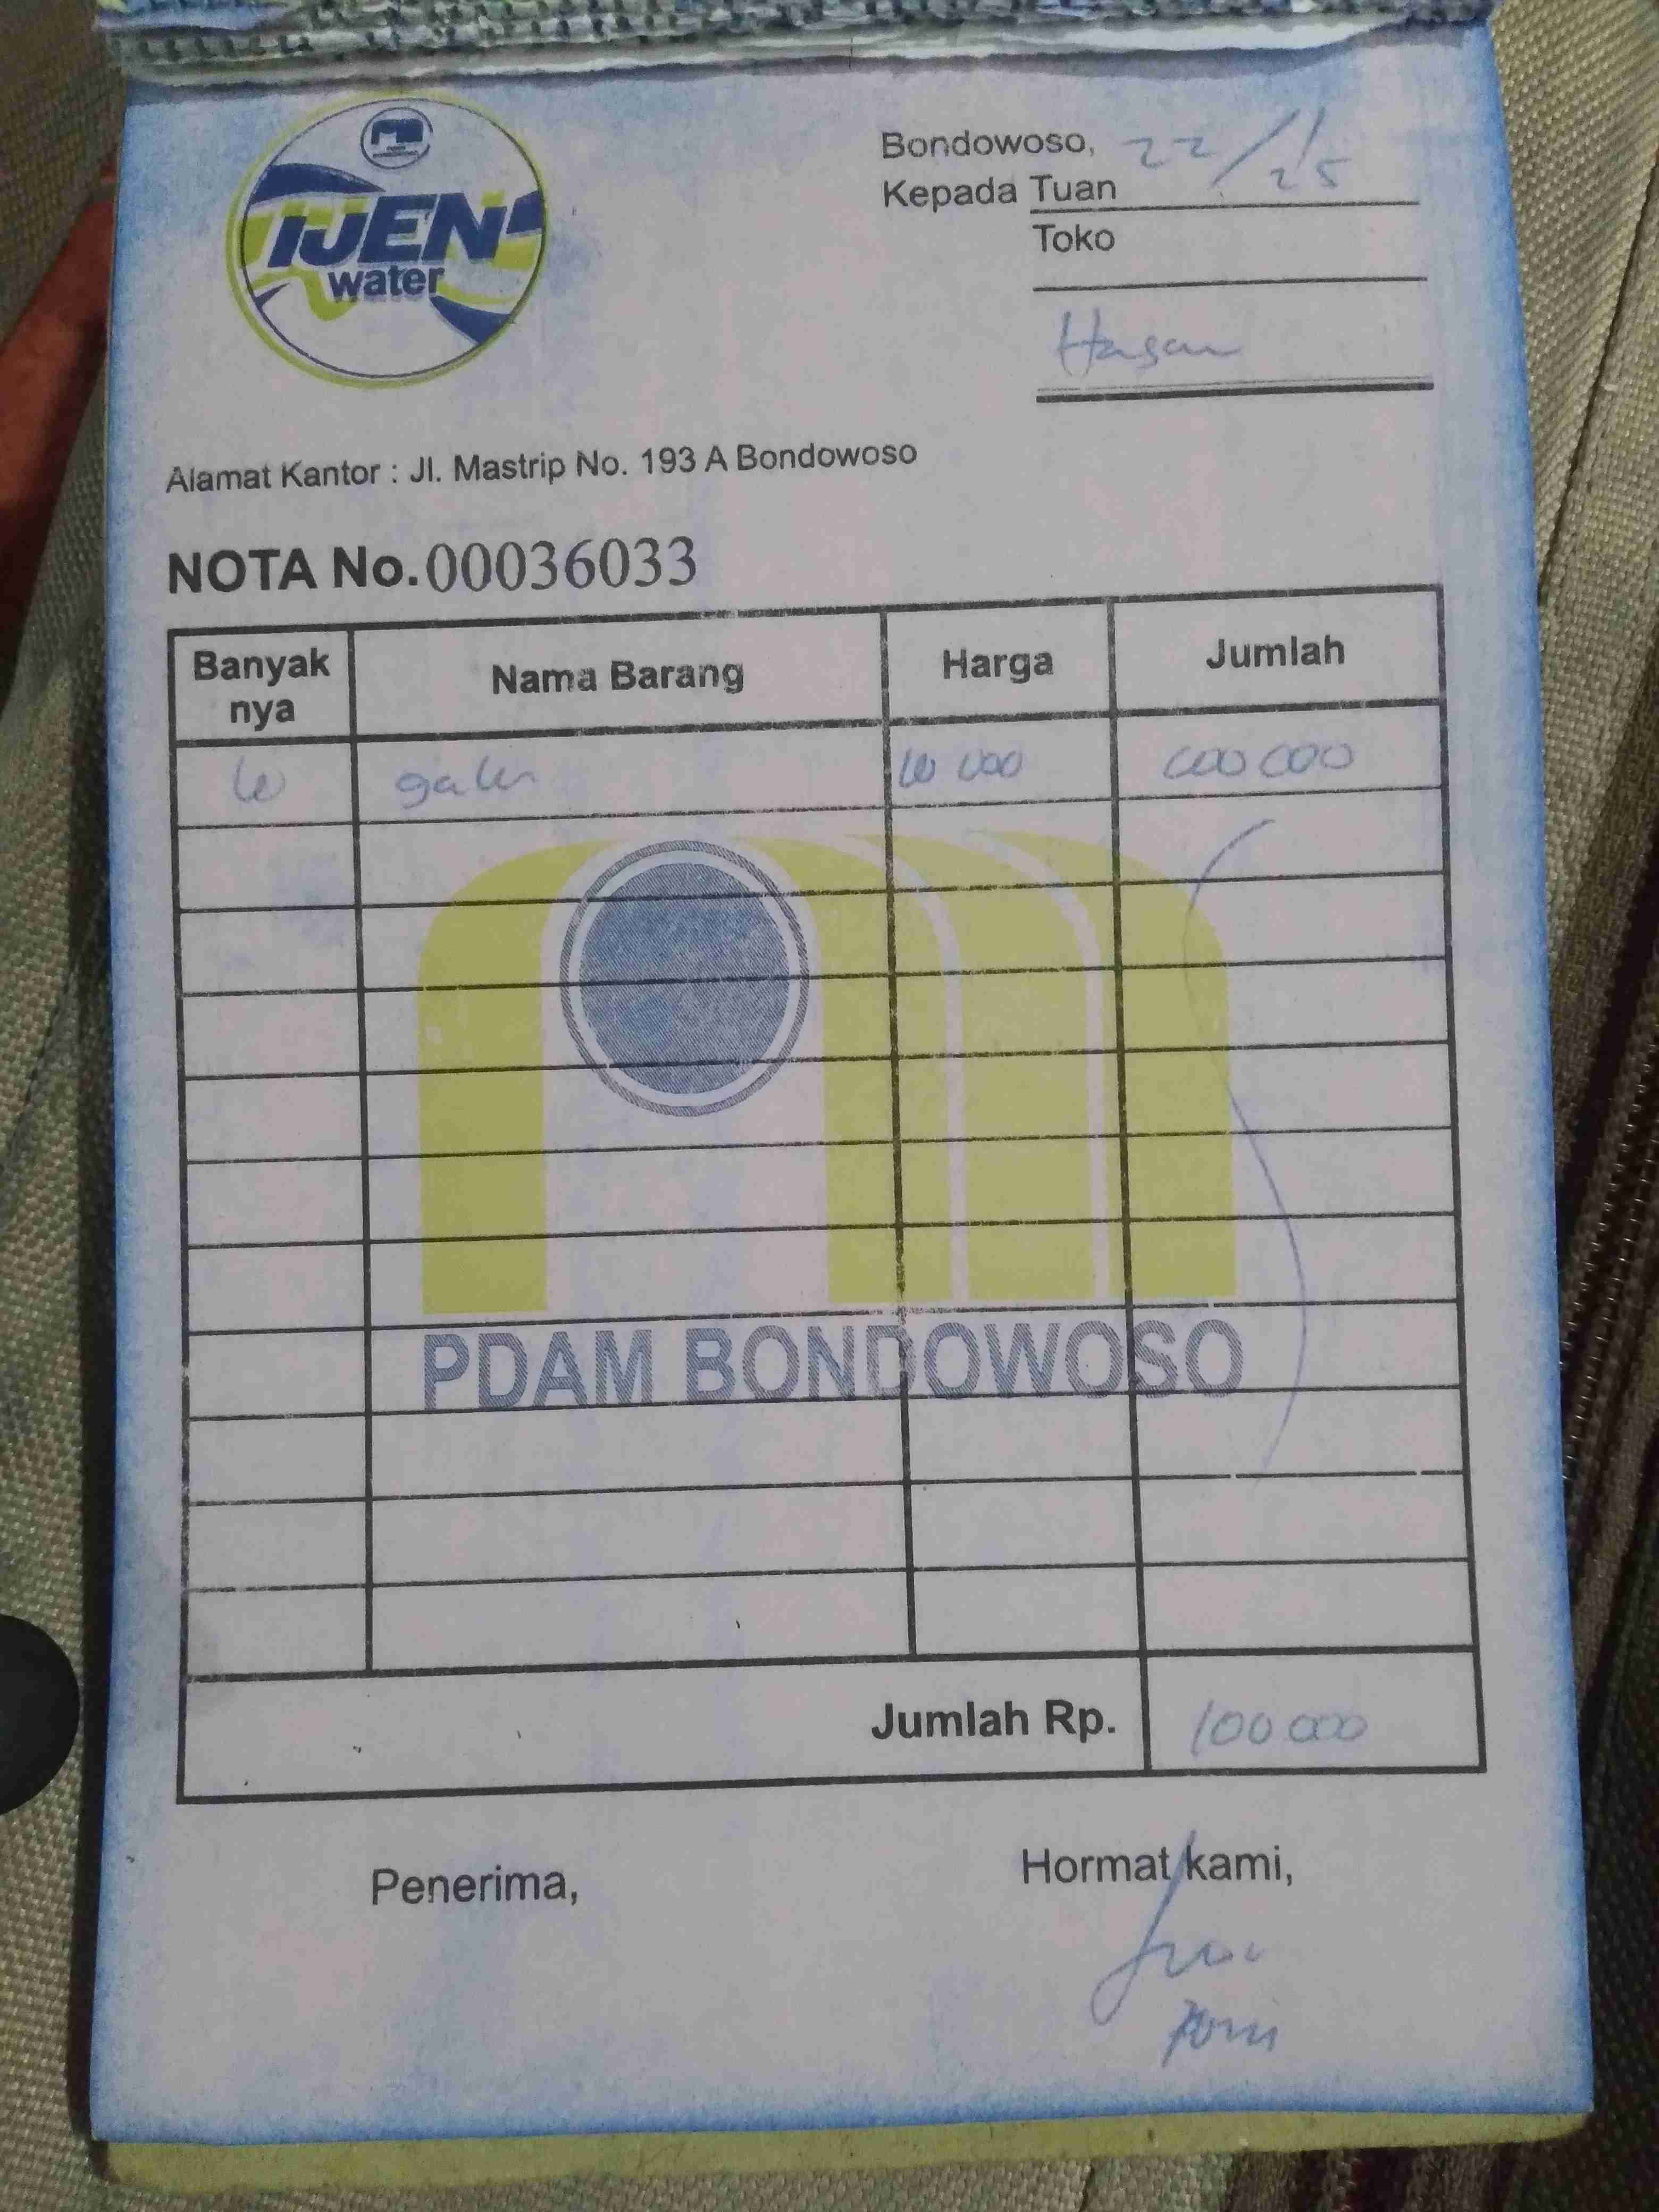 IJEN
water
Bondowoso, 22/1
25
Kepada Tuan
Toko
Hasan
Alamat Kantor : Jl. Mastrip No. 193 A Bondowoso
NOTA No. 00036033
Banyak nya Nama Barang Harga Jumlah
10 galon 10 000 100 000
PDAM BONDOWOSO
Jumlah Rp. 100 000
Penerima, Hormat kami,